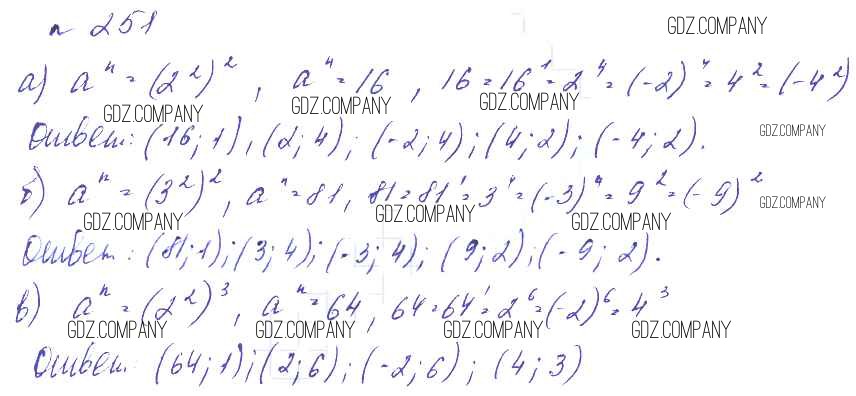 n 251
GDZ.COMPANY
а) aⁿ = (2²)², aⁿ = 16, 16 = 16¹ = 2⁴ = (-2)⁴ = 4² = (-4²)
GDZ.COMPANY GDZ.COMPANY GDZ.COMPANY
Ответ: (16; 1), (2; 4); (-2; 4); (4; 2); (-4; 2).
GDZ.COMPANY
б) aⁿ = (3²)², aⁿ = 81, 81 = 81¹ = 3⁴ = (-3)⁴ = 9² = (-9)²
GDZ.COMPANY
GDZ.COMPANY GDZ.COMPANY GDZ.COMPANY
Ответ: (81; 1); (3; 4); (-3; 4); (9; 2); (-9; 2).
в) aⁿ = (2²)³, aⁿ = 64, 64 = 64¹ = 2⁶ = (-2)⁶ = 4³
GDZ.COMPANY GDZ.COMPANY GDZ.COMPANY GDZ.COMPANY
Ответ: (64; 1); (2; 6); (-2; 6); (4; 3)